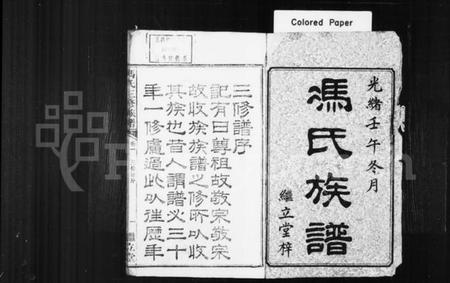 Colored Paper
光緒壬午冬月
馮氏族譜
繼立堂梓
三修譜序
記有曰尊祖故敬宗敬宗
故收族族譜之修所以收
其族也昔人謂譜必三十
年一修慮過此以往歷年